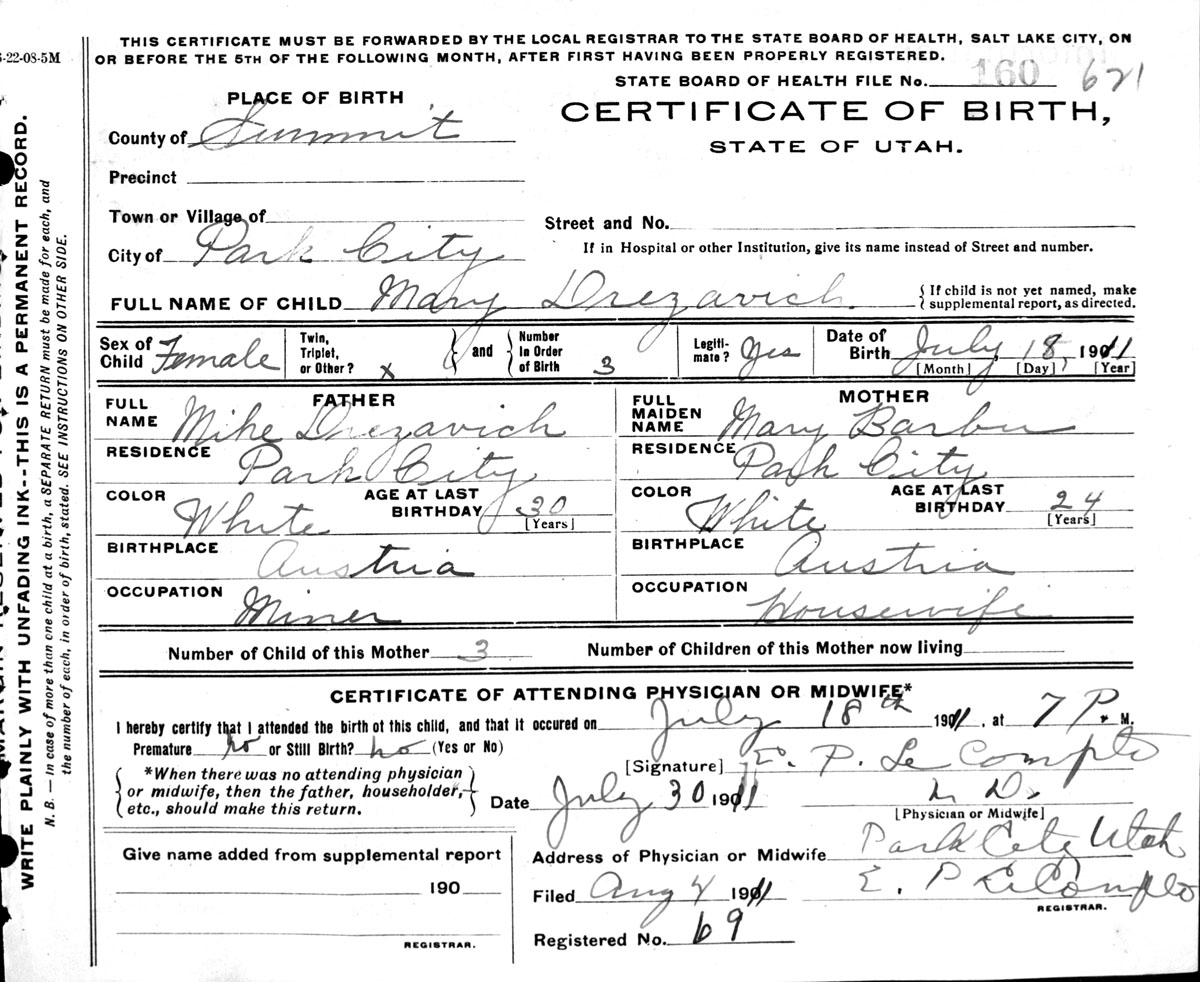 THIS CERTIFICATE MUST BE FORWARDED BY THE LOCAL REGISTRAR TO THE STATE BOARD OF HEALTH, SALT LAKE CITY, ON
OR BEFORE THE 5TH OF THE FOLLOWING MONTH, AFTER FIRST HAVING BEEN PROPERLY REGISTERED.
-22-08-5M
STATE BOARD OF HEALTH FILE No. 160 621
PLACE OF BIRTH
CERTIFICATE OF BIRTH,
STATE OF UTAH.
County of Summit
Precinct
Town or Village of
Street and No.
City of Park City
If in Hospital or other Institution, give its name instead of Street and number.
FULL NAME OF CHILD Mary Drezavich
{ If child is not yet named, make
supplemental report, as directed.
Sex of Child Female
Twin, Triplet, or Other? x
} and {
Number in Order of Birth 3
Legiti- mate? Yes
Date of Birth July 18, 1911
[Month] [Day] [Year]
FATHER
FULL NAME Mike Drezavich
RESIDENCE Park City
COLOR White
AGE AT LAST BIRTHDAY 30
[Years]
BIRTHPLACE Austria
OCCUPATION Miner
MOTHER
FULL MAIDEN NAME Mary Barbu
RESIDENCE Park City
COLOR White
AGE AT LAST BIRTHDAY 24
[Years]
BIRTHPLACE Austria
OCCUPATION Housewife
Number of Child of this Mother 3 Number of Children of this Mother now living
CERTIFICATE OF ATTENDING PHYSICIAN OR MIDWIFE*
I hereby certify that I attended the birth ot this child, and that it occured on July 18th 1911, at 7 P. M.
Premature no or Still Birth? no (Yes or No)
[Signature] E. P. Le Compte
M D.
[Physician or Midwife]
{ *When there was no attending physician
or midwife, then the father, householder,
etc., should make this return. }
Date July 30 1911
Give name added from supplemental report
190
REGISTRAR.
Address of Physician or Midwife Park City Utah
Filed Aug 4 1911 E. P. LeCompte
REGISTRAR.
Registered No. 69
WRITE PLAINLY WITH UNFADING INK--THIS IS A PERMANENT RECORD.
N. B. — In case of more than one child at a birth, a SEPARATE RETURN must be made for each, and
the number of each, in order of birth, stated. SEE INSTRUCTIONS ON OTHER SIDE.